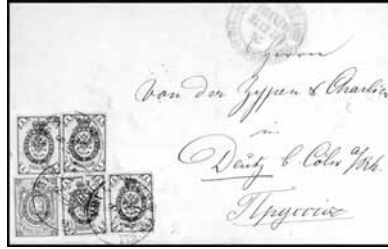 Herrn
Van der Zypen & Charlier
in
Deutz b. Cöln a/Rh.
Пруссия